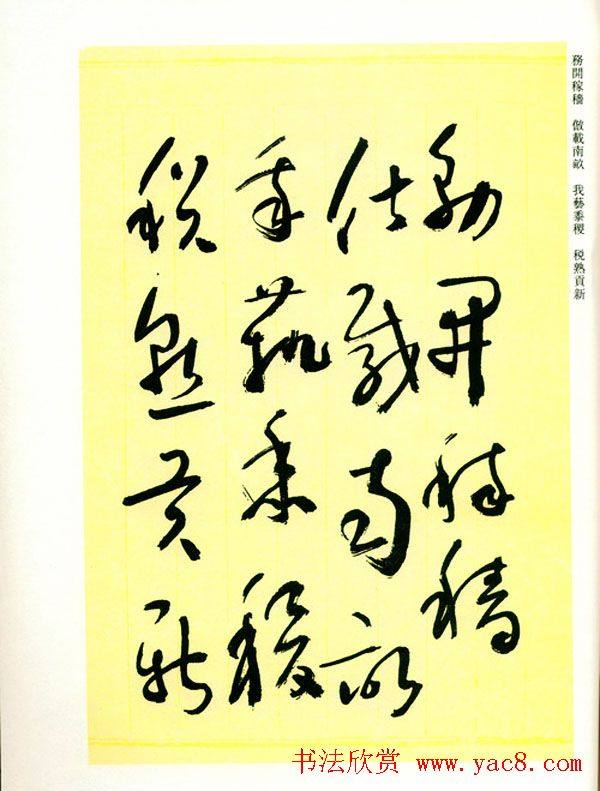 務開稼穡 俶載南畝 我藝黍稷 税熟貢新
務開稼穡
俶載南畝
我藝黍稷
税熟貢新
书法欣赏 www.yac8.com